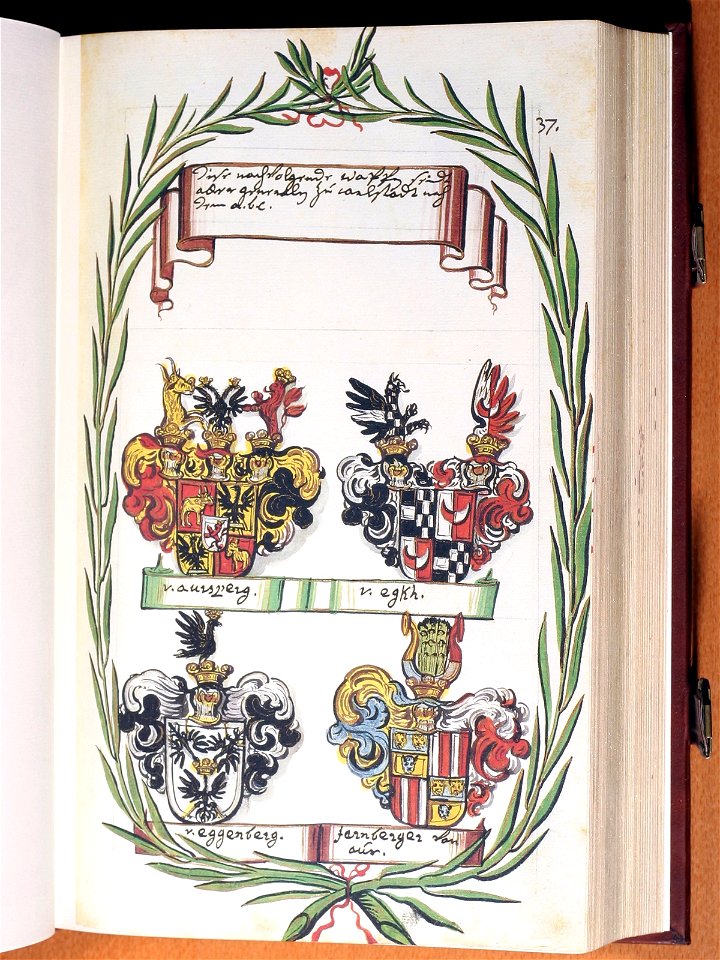 37.
Diese nachfolgende wapen sindt
adere generalln zu carlstadt nach
dem a.b.c.
v. aursperg.
v. egkh.
v. eggenberg.
fernberger von
aur.